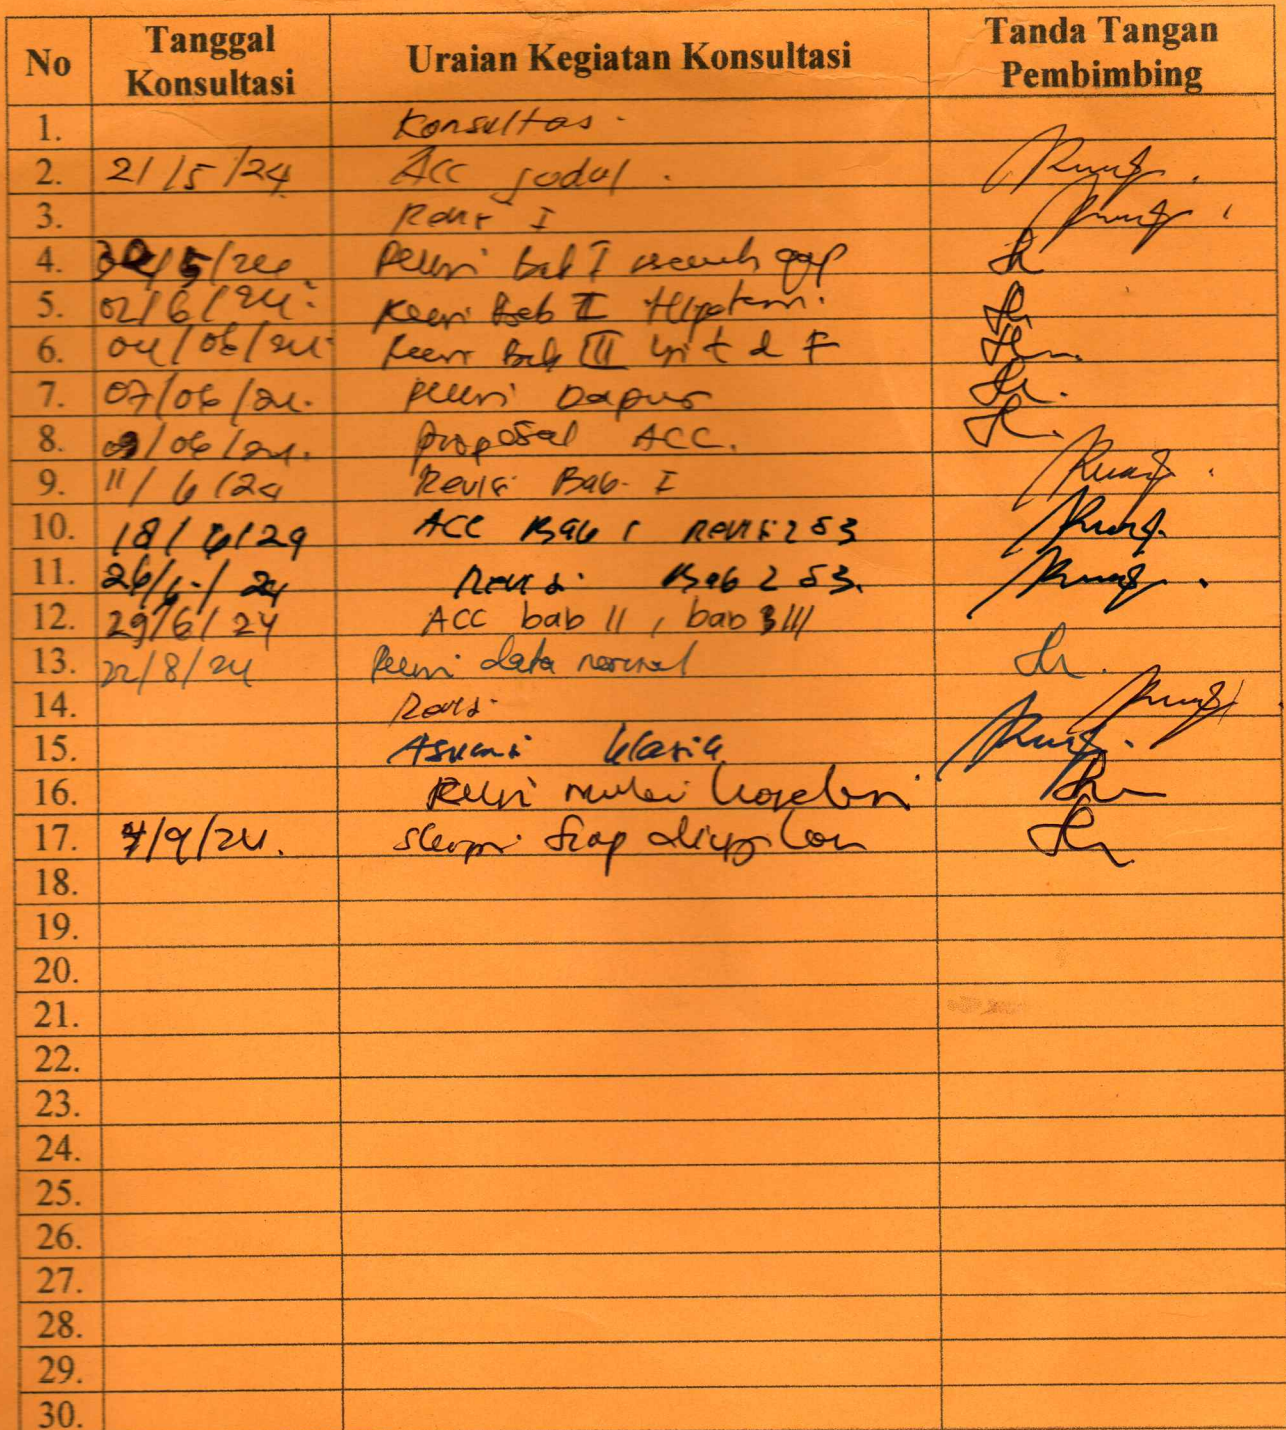 No Tanggal Konsultasi Uraian Kegiatan Konsultasi Tanda Tangan Pembimbing
1. Konsultas.
2. 21/5/24 Acc judul.
3. Revisi I
4. 30/5/24 Revisi bab I research gap
5. 02/6/24. Revisi Bab II Hipotesis.
6. 04/06/24 Revisi Bab III uji t & F
7. 07/06/24. Revisi Dapus
8. 09/06/24. proposal ACC.
9. 11/6/24 Revisi Bab-I
10. 18/6/24 ACC Bab 1 revisi 2 & 3
11. 26/6/24 Revisi Bab 2 & 3.
12. 29/6/24 ACC bab II, bab III
13. 22/8/24 Revisi data normal
14. Revisi
15. Asumsi klasik
16. Revisi
17. 7/9/24. skripsi siap diujikan
18.
19.
20.
21.
22.
23.
24.
25.
26.
27.
28.
29.
30.